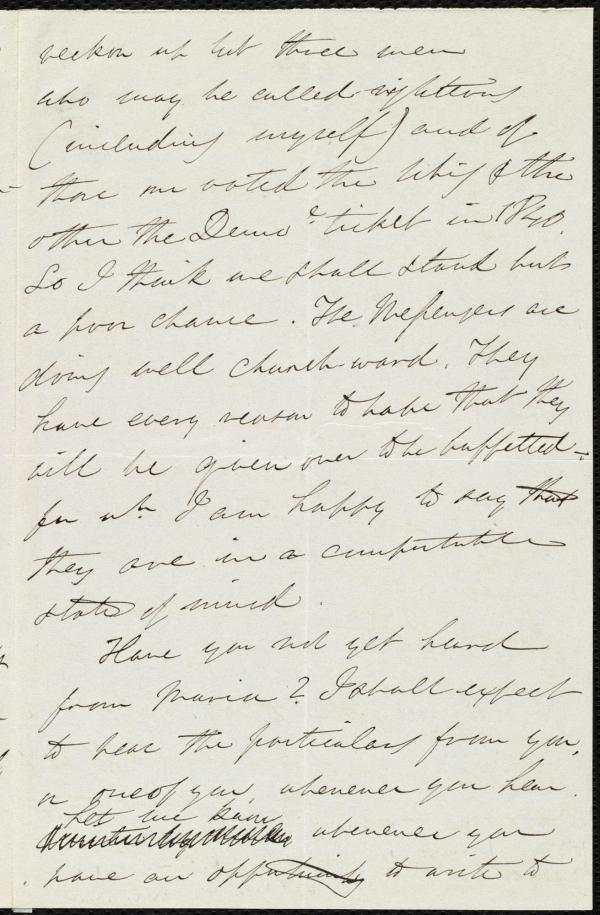 reckon up but three men
who may be called righteous
(including myself) and of
those one voted the Whig & the
other the Demo c ticket in 1840.
So I think we shall stand but
a poor chance. The Messengers are
doing well church-ward. They
have every reason to hope that they
will be given over to be buffetted -
for wh. I am happy to say that
they are in a comfortable
state of mind.
Have you not yet heard
from Maria? I shall expect
to hear the particulars from you,
or one of you, whenever you hear.
Let me know
whenever you
have an opportunity to write to